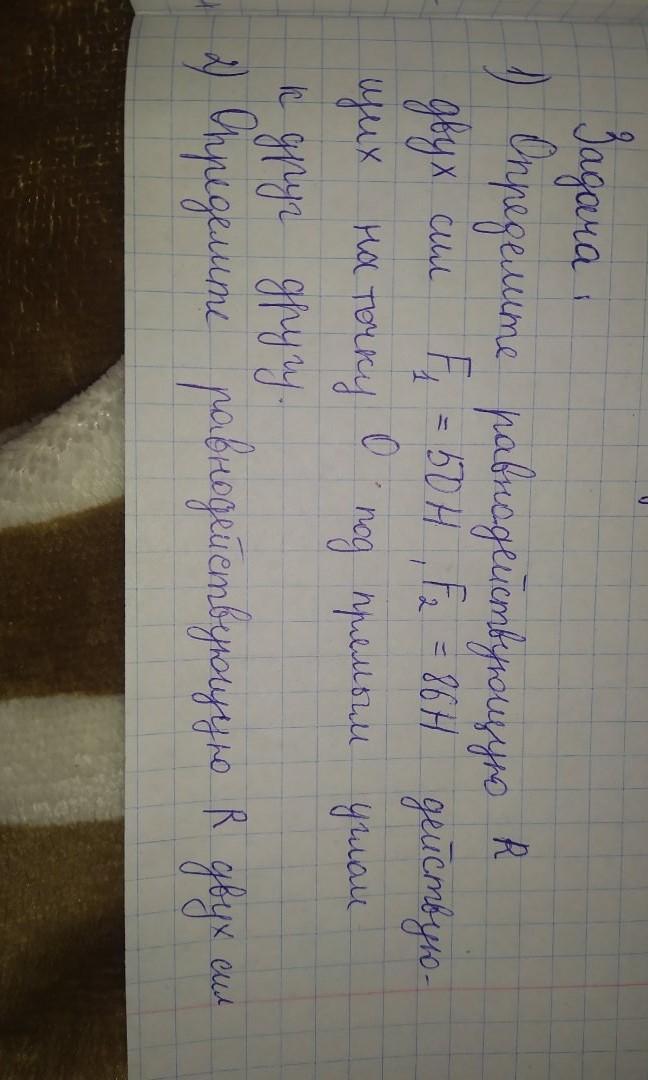 Задача:
1) Определите равнодействующую R
двух сил F1 = 50Н, F2 = 86Н действую-
щих на точку О под прямым углом
к друг другу.
2) Определите равнодействующую R двух сил